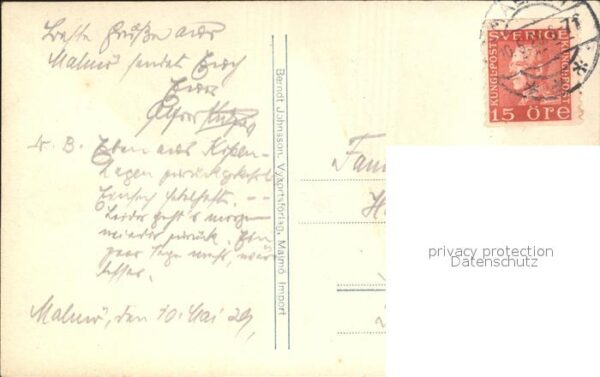 Beste Grüße aus
Malmö sendet Euch
Euer
Alfred
N. B. Eben aus Kopen-
hagen zurückgekehrt.
Einfach fabelhaft. --
Leider geht's morgen
wieder zurück. Ein
paar Tage mehr, wäre
besser.
Malmö, den 10. Mai 29,
Berndt Johnsson, Vykortsförlag, Malmö Import
SVERIGE
KUNGL: POST
KUNGL: POST
15 ÖRE
Fam
H
privacy protection
Datenschutz